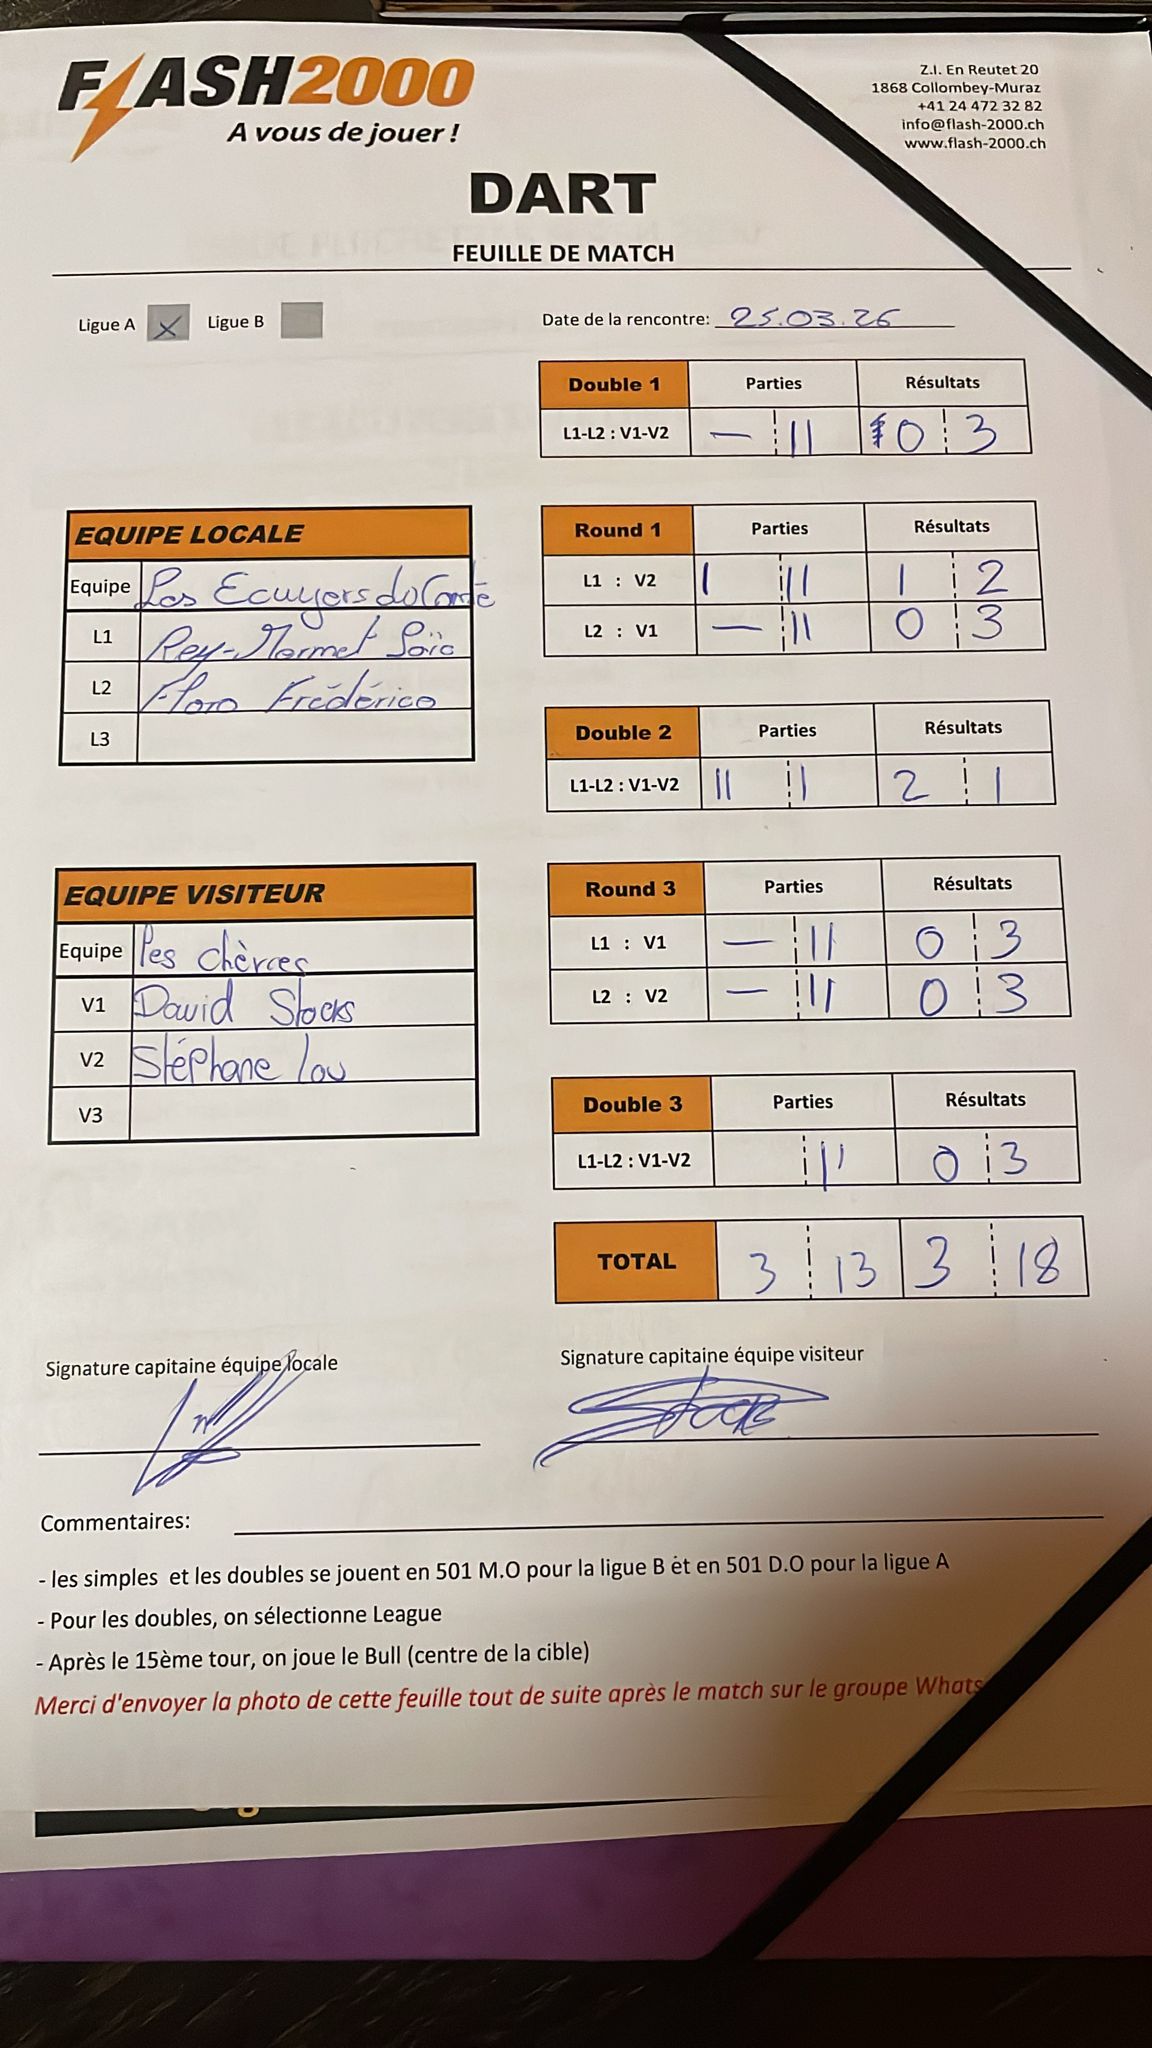 FLASH2000
A vous de jouer !
Z.I. En Reutet 20
1868 Collombey-Muraz
+41 24 472 32 82
info@flash-2000.ch
www.flash-2000.ch
DART
FEUILLE DE MATCH
Ligue A X Ligue B
Date de la rencontre: 25.03.26
Double 1 Parties Résultats
L1-L2 : V1-V2 — || 0 3
EQUIPE LOCALE
Equipe Les Ecuyers du Comté
L1 Rey-Mermet Loïc
L2 Frédérico
L3
Round 1 Parties Résultats
L1 : V2 | || 1 2
L2 : V1 — || 0 3
Double 2 Parties Résultats
L1-L2 : V1-V2 || | 2 1
EQUIPE VISITEUR
Equipe les chèvres
V1 David Stocks
V2 Stéphane Lou
V3
Round 3 Parties Résultats
L1 : V1 — || 0 3
L2 : V2 — || 0 3
Double 3 Parties Résultats
L1-L2 : V1-V2 || 0 3
TOTAL 3 13 3 18
Signature capitaine équipe locale
Signature capitaine équipe visiteur
Commentaires:
- les simples et les doubles se jouent en 501 M.O pour la ligue B et en 501 D.O pour la ligue A
- Pour les doubles, on sélectionne League
- Après le 15ème tour, on joue le Bull (centre de la cible)
Merci d'envoyer la photo de cette feuille tout de suite après le match sur le groupe Whats